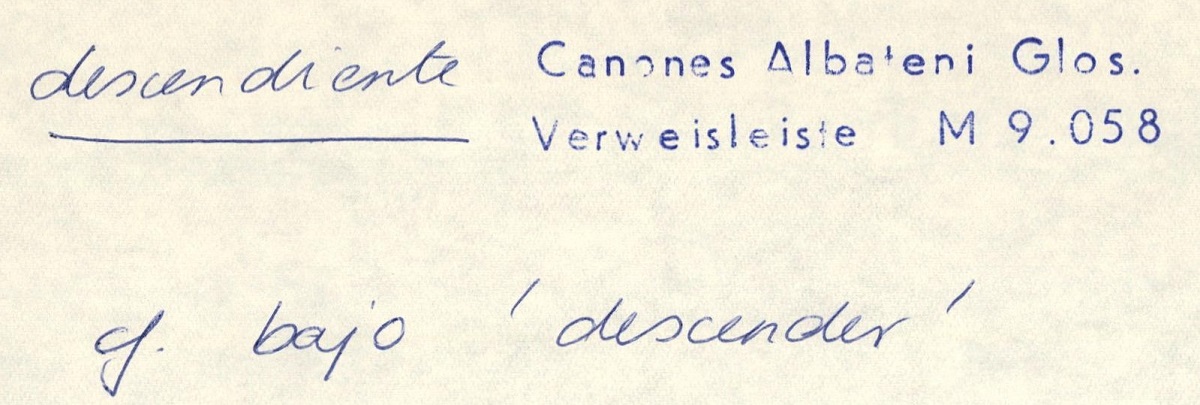 descendiente Canones Albateni Glos.
Verweisleiste M 9.058
cf. bajo 'descender'